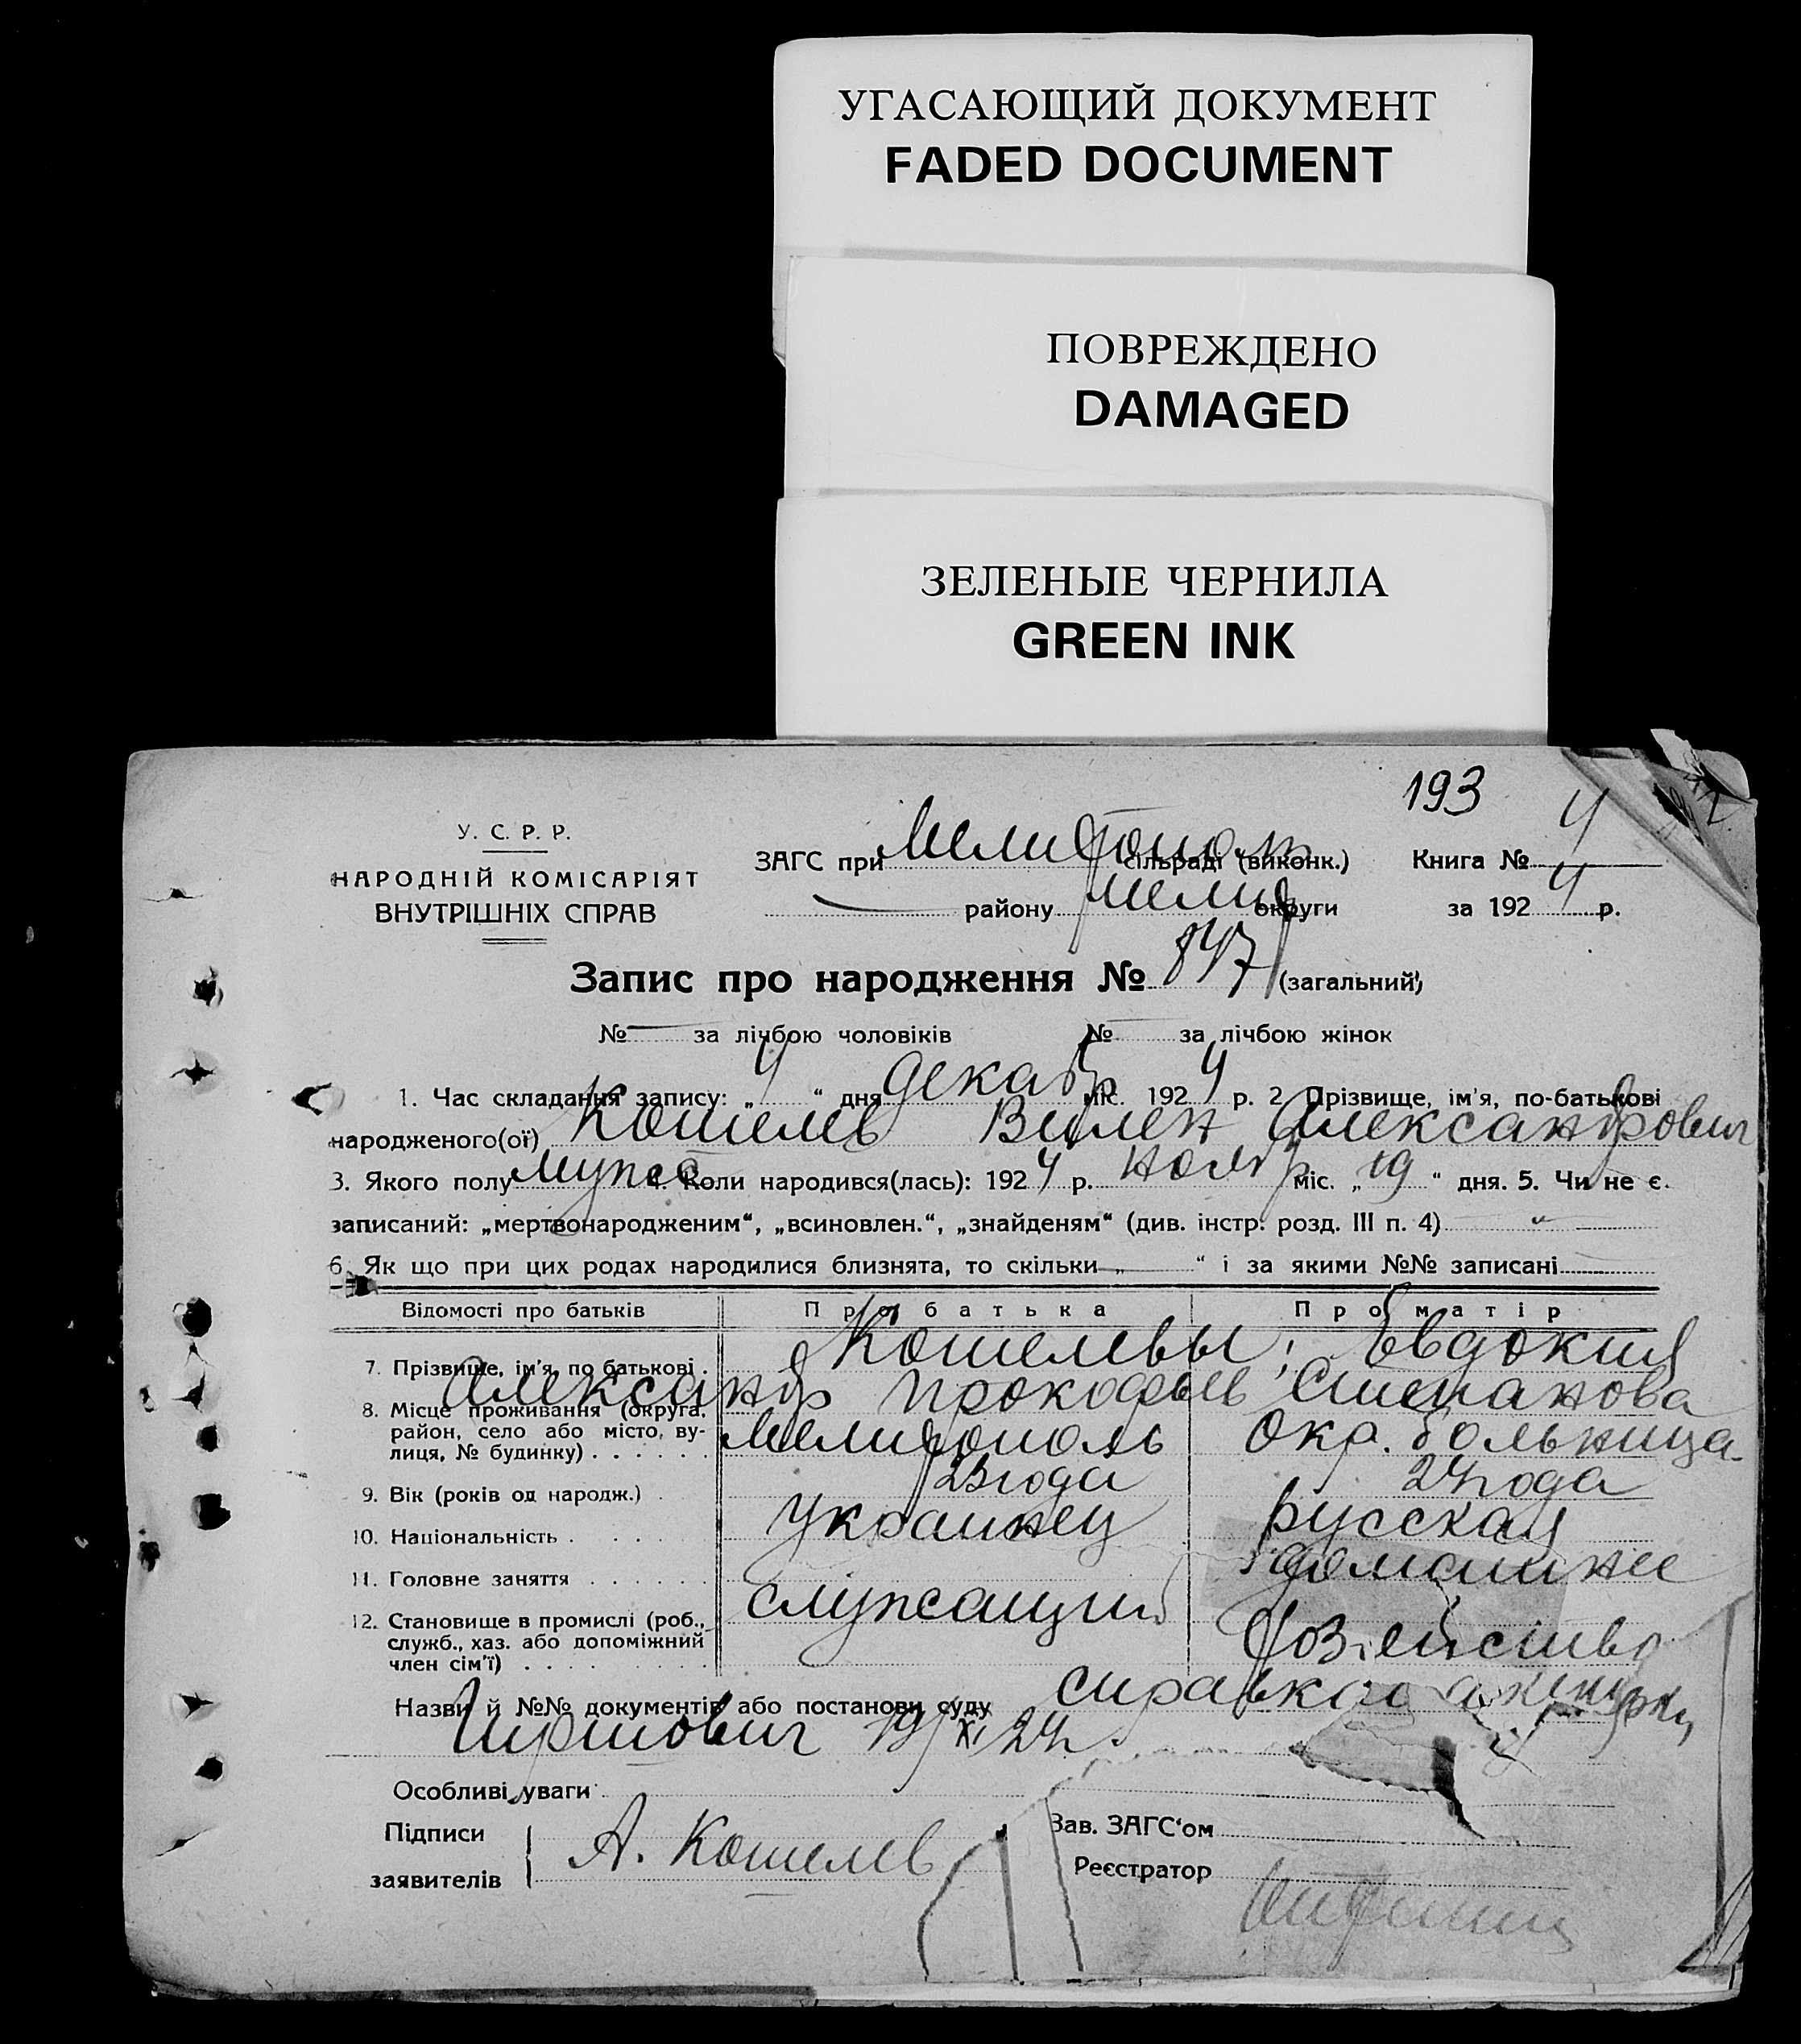 УГАСАЮЩИЙ ДОКУМЕНТ
FADED DOCUMENT
ПОВРЕЖДЕНО
DAMAGED
ЗЕЛЕНЫЕ ЧЕРНИЛА
GREEN INK
193
У. С. Р. Р.
НАРОДНІЙ КОМІСАРІЯТ
ВНУТРІШНІХ СПРАВ
ЗАГС при Мелитополь сільраді (виконк.) Книга № 4
району Мелит округи за 1924 р.
Запис про народження № 847 (загальний)
№ за лічбою чоловіків № за лічбою жінок
1. Час складання запису: „4“ дня декабр міс. 1924 р. 2 Прізвище, ім'я, по-батькові
народженого(ої) Кошелев Вилен Александрович
3. Якого полу мужс 4. Коли народився(лась): 1924 р. ноябр міс. „19“ дня. 5. Чи не є
записаний: „мертвонародженим“, „всиновлен.“, „знайденям“ (див. інстр. розд. III п. 4) "
6. Як що при цих родах народилися близнята, то скільки „ “ і за якими №№ записані
Відомості про батьків Про батька Про матір
7. Прізвище, ім'я, по батькові Кошелевы, Евдокия
Александр Прокофьев Степанова
8. Місце проживання (округа, район, село або місто, ву-
лиця, № будинку) Мелитополь Окр. больница
9. Вік (років од народж.) 23 года 24 года
10. Національність Украинец русская
11. Головне заняття домашнее
12. Становище в промислі (роб., служащий
служб., хаз. або допоміжний хозяйство
член сім'ї)
Назви й №№ документів або постанови суду справка акушерки
19/XI 24 г.
Особливі уваги
Підписи
заявителів А. Кошелев
Зав. ЗАГС'ом
Реєстратор